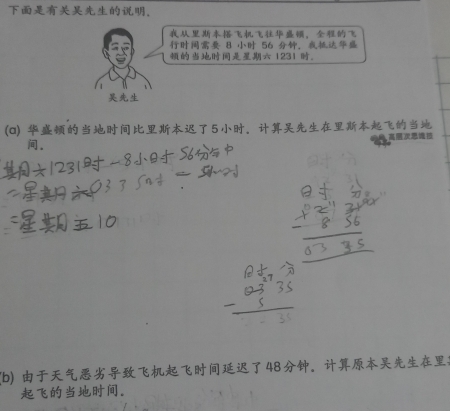 下面是有关吴先生的说明。
我从里斯本搭飞机飞往华盛顿，全程的飞
行时间需要 8 小时 56 分钟。我抵达华盛
顿的当地时间是星期六 1231 时。
吴先生
(a) 华盛顿的当地时间比里斯本迟了5小时。计算吴先生在里斯本起飞的当地
时间。
高层次思维技
星期六1231时－8小时56分
＝星期六0335时－5小时
＝星期五10
时 分
－ 8 56
03 35
时 分
03 35
－ 5
35
(b) 由于天气恶劣导致飞机起飞时间延迟了48分钟。计算原本吴先生在里
起飞的当地时间。